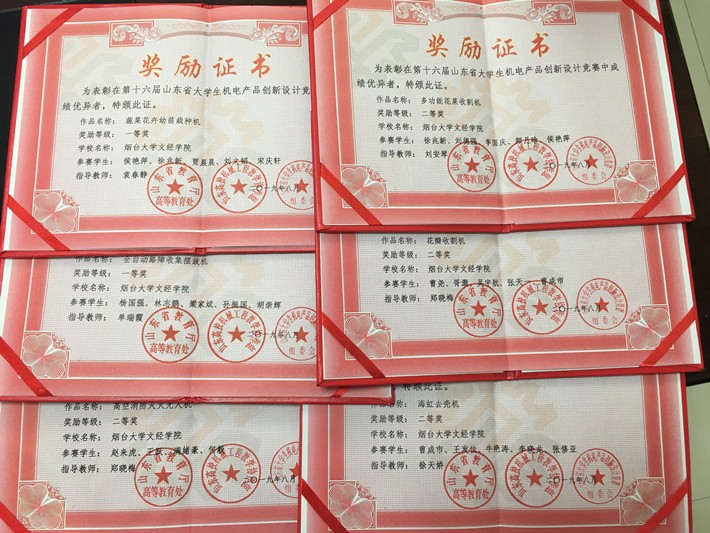 奖励证书
为表彰在第十六届山东省大学生机电产品创新设计竞
绩优异者，特颁此证。
作品名称： 蔬菜花卉幼苗栽种机
奖励等级： 一等奖
学校名称： 烟台大学文经学院
参赛学生： 侯艳萍、徐兆新、贾晨晨、刘文韬、宋庆轩
指导教师： 袁春静
山东省教育厅
高等教育处
二〇一九年八月
奖励证书
为表彰在第十六届山东省大学生机电产品创新设计竞赛中成
绩优异者，特颁此证。
作品名称： 多功能花菜收割机
奖励等级： 二等奖
学校名称： 烟台大学文经学院
参赛学生： 徐兆新、刘德强、李国庆、侯艳萍
指导教师： 刘安琴
二〇一九年八月
组委会
全自动路障收集摆放机
奖励等级： 一等奖
学校名称： 烟台大学文经学院
参赛学生： 杨国强、林志鹏、梁家斌、孙振国、胡崇辉
指导教师： 单瑞霞
山东省教育厅
高等教育处
山东高校机械工程教学协作组
组委会
二〇一九年八月
作品名称： 花瓣收割机
奖励等级： 二等奖
学校名称： 烟台大学文经学院
参赛学生： 曹尧、胥潇、吴宇航、张天一、曹成市
指导教师： 郑晓梅
山东省教育厅
高等教育处
组委会
二〇一九年八月
高空消防灭火无人机
奖励等级： 二等奖
学校名称： 烟台大学文经学院
参赛学生： 赵来虎、王跃、
指导教师： 郑晓梅
山东省教育厅
高等教育处
二〇一九年八月
特颁此证。
作品名称： 海虹去壳机
奖励等级： 二等奖
学校名称： 烟台大学文经学院
参赛学生： 曹成市、王发仕、牛艳涛、李晓龙、张修亚
指导教师： 徐天娇
山东省教育厅
高等教育处
组委会
二〇一九年八月